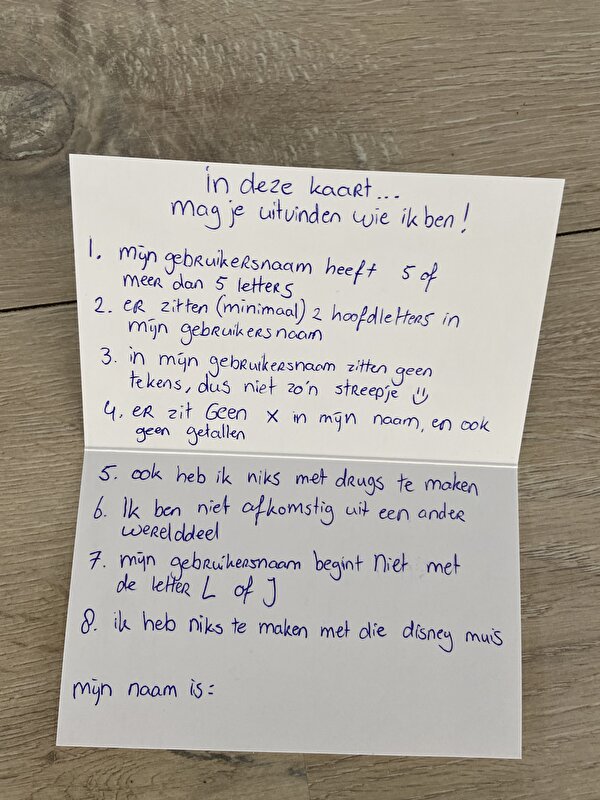 in deze kaart...
mag je uitvinden wie ik ben!
1. mijn gebruikersnaam heeft 5 of
meer dan 5 letters
2. er zitten (minimaal) 2 hoofdletters in
mijn gebruikersnaam
3. in mijn gebruikersnaam zitten geen
tekens, dus niet zo'n streepje ☺
4. er zit Geen x in mijn naam, en ook
geen getallen
5. ook heb ik niks met drugs te maken
6. Ik ben niet afkomstig uit een ander
werelddeel
7. mijn gebruikersnaam begint Niet met
de letter L of J
8. ik heb niks te maken met die disney muis
mijn naam is: